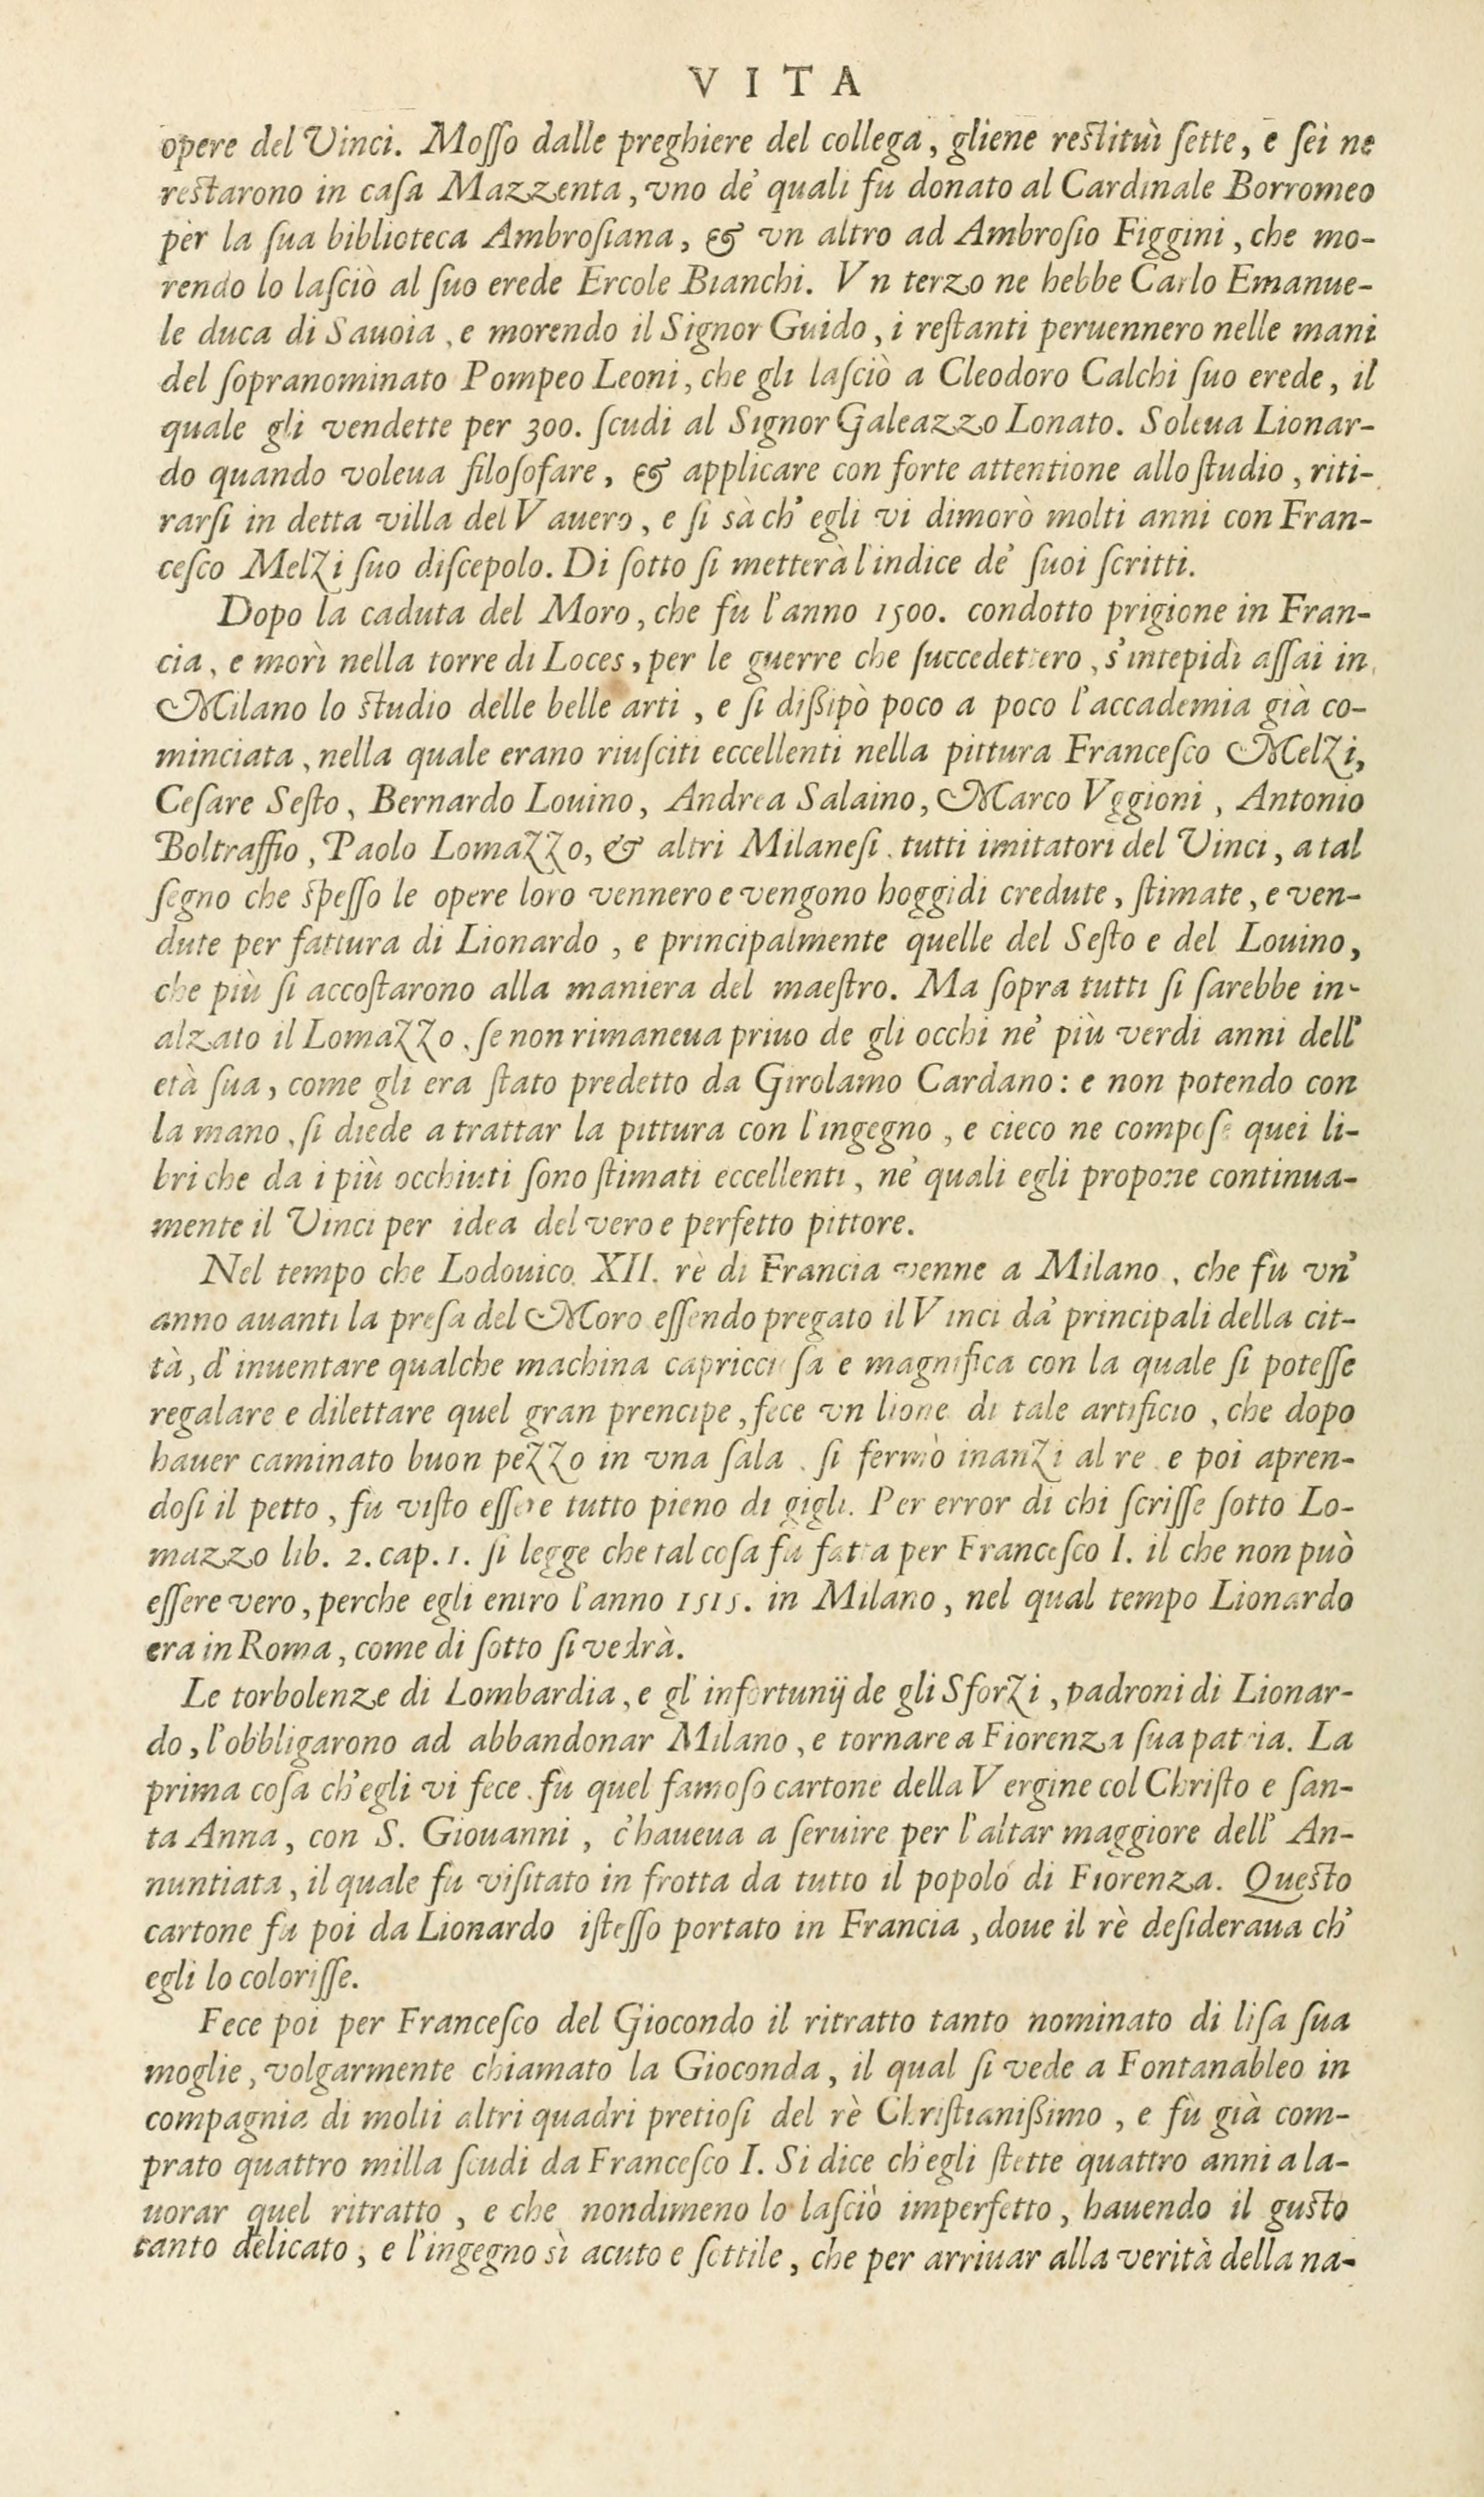 VITA
opere del Vinci. Moſſo dalle preghiere del collega, gliene reſtituì ſette, e ſei ne
reſtarono in caſa Mazzenta, vno de' quali fu donato al Cardinale Borromeo
per la ſua biblioteca Ambroſiana, & vn altro ad Ambroſio Figgini, che mo-
rendo lo laſciò al ſuo erede Ercole Bianchi. Vn terzo ne hebbe Carlo Emanue-
le duca di Sauoia, e morendo il Signor Guido, i reſtanti peruennero nelle mani
del ſopranominato Pompeo Leoni, che gli laſciò a Cleodoro Calchi ſuo erede, il
quale gli vendette per 300. ſcudi al Signor Galeazzo Lonato. Soleua Lionar-
do quando voleua filoſofare, & applicare con forte attentione allo ſtudio, riti-
rarſi in detta villa del Vauero, e ſi sà ch' egli vi dimorò molti anni con Fran-
ceſco Melzi ſuo diſcepolo. Di ſotto ſi metterà l'indice de' ſuoi ſcritti.
Dopo la caduta del Moro, che fù l'anno 1500. condotto prigione in Fran-
cia, e morì nella torre di Loces, per le guerre che ſuccedettero, s'intepidì aſſai in
Milano lo ſtudio delle belle arti, e ſi dißipò poco a poco l'accademia già co-
minciata, nella quale erano riuſciti eccellenti nella pittura Franceſco Melzi,
Ceſare Seſto, Bernardo Louino, Andrea Salaino, Marco Vggioni, Antonio
Boltraffio, Paolo Lomazzo, & altri Milaneſi, tutti imitatori del Vinci, a tal
ſegno che ſpeſſo le opere loro vennero e vengono hoggidì credute, ſtimate, e ven-
dute per fattura di Lionardo, e principalmente quelle del Seſto e del Louino,
che più ſi accoſtarono alla maniera del maeſtro. Ma ſopra tutti ſi ſarebbe in-
alzato il Lomazzo, ſe non rimaneua priuo de gli occhi ne' più verdi anni dell'
età ſua, come gli era ſtato predetto da Girolamo Cardano: e non potendo con
la mano, ſi diede a trattar la pittura con l'ingegno, e cieco ne compoſe quei li-
bri che da i più occhiuti ſono ſtimati eccellenti, ne' quali egli propone continua-
mente il Vinci per idea del vero e perfetto pittore.
Nel tempo che Lodouico XII. rè di Francia venne a Milano, che fù vn'
anno auanti la preſa del Moro eſſendo pregato il Vinci da' principali della cit-
tà, d'inuentare qualche machina capriccioſa e magnifica con la quale ſi poteſſe
regalare e dilettare quel gran prencipe, fece vn lione di tale artificio, che dopo
hauer caminato buon pezzo in vna ſala, ſi fermò inanzi al re, e poi apren-
doſi il petto, fù viſto eſſere tutto pieno di gigli. Per error di chi ſcriſſe ſotto Lo-
mazzo lib. 2. cap. 1. ſi legge che tal coſa fù fatta per Franceſco I. il che non può
eſſere vero, perche egli entro l'anno 1515. in Milano, nel qual tempo Lionardo
era in Roma, come di ſotto ſi vedrà.
Le torbolenze di Lombardia, e gl' infortunij de gli Sforzi, padroni di Lionar-
do, l'obbligarono ad abbandonar Milano, e tornare a Fiorenza ſua patria. La
prima coſa ch'egli vi fece, fù quel famoſo cartone della Vergine col Chriſto e ſan-
ta Anna, con S. Giouanni, c'haueua a ſeruire per l'altar maggiore dell' An-
nuntiata, il quale fu viſitato in frotta da tutto il popolo di Fiorenza. Queſto
cartone fu poi da Lionardo iſteſſo portato in Francia, doue il rè deſideraua ch'
egli lo coloriſſe.
Fece poi per Franceſco del Giocondo il ritratto tanto nominato di liſa ſua
moglie, volgarmente chiamato la Gioconda, il qual ſi vede a Fontanableo in
compagnia di molti altri quadri pretioſi del rè Chriſtianißimo, e fù già com-
prato quattro milla ſcudi da Franceſco I. Si dice ch'egli ſtette quattro anni a la-
uorar quel ritratto, e che nondimeno lo laſciò imperfetto, hauendo il guſto
tanto delicato, e l'ingegno sì acuto e ſottile, che per arriuar alla verità della na-